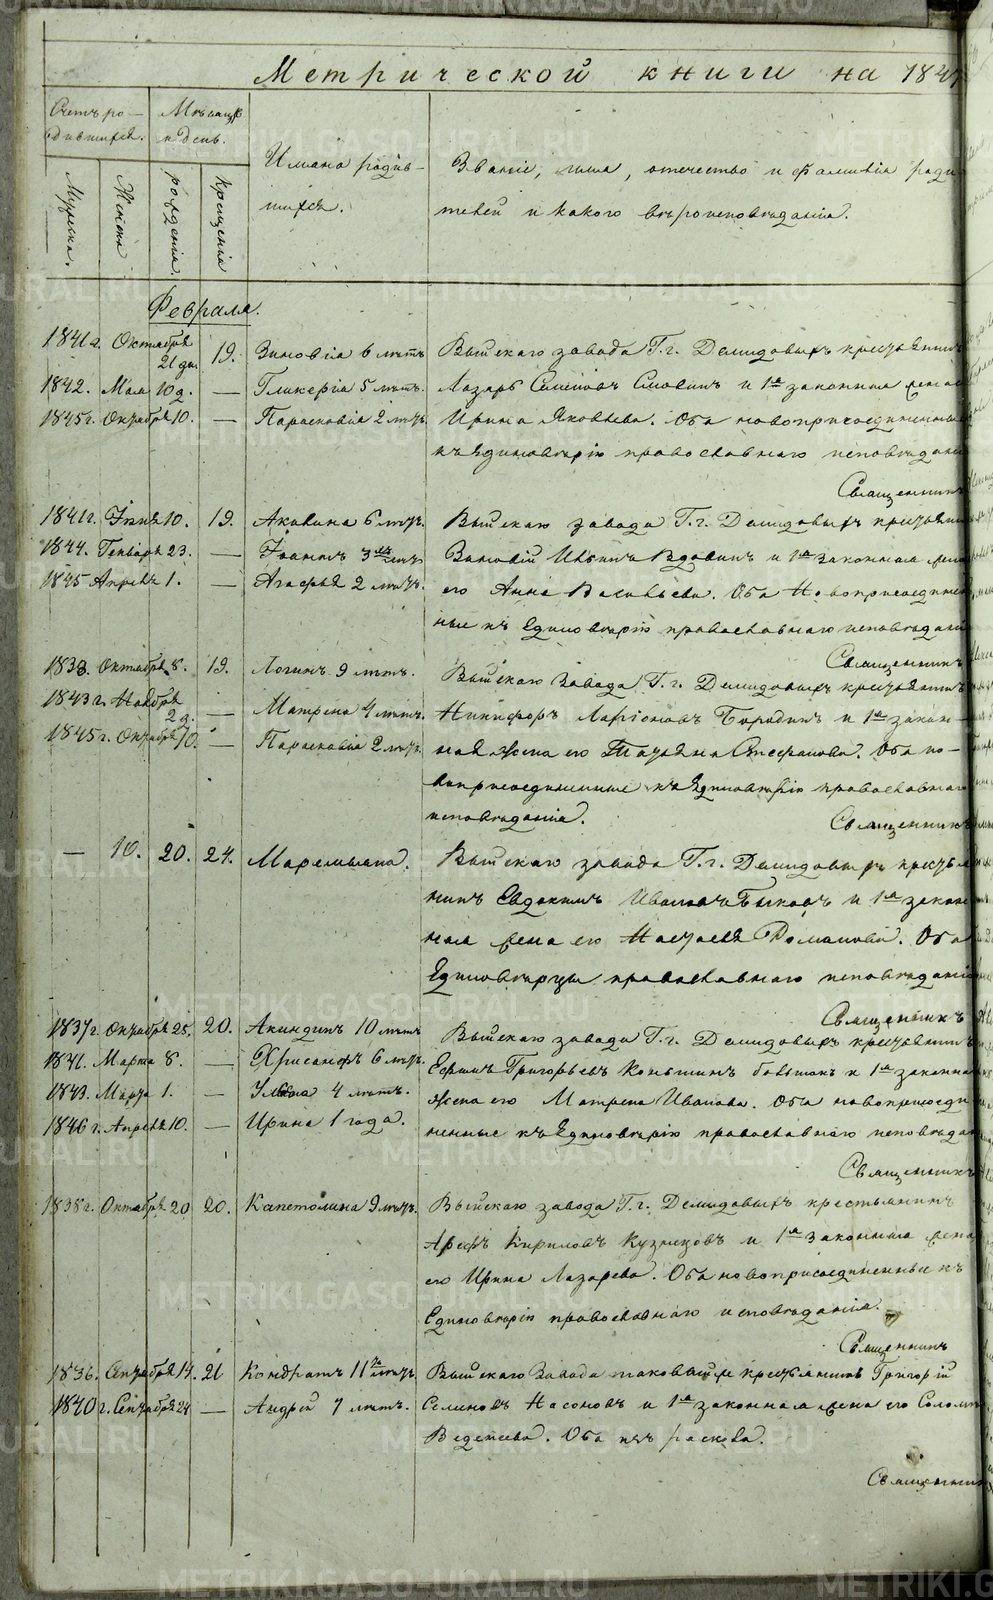 Метрической книги на 184
Счетъ ро-
дившихся.
Мѣсяцъ
и день.
Имена родив-
шихся.
Званіе, имя, отечество и фамилія роди
телей и какого вѣроисповѣданія.
Мужска.
Женска
рожденія.
крещенія
Февраля.
1841 г. Октября 21 дн. 19. Зиновія 6 лѣтъ Выйскаго завода Г. г. Демидовыхъ крестьянинъ
1842. Мая 10 д. — Гликерія 5 лѣтъ. Лазарь Семеновъ и 1я законная жена
1845 г. Октября 10. — Параскевія 2 лѣтъ. Ирина Яковлева. Оба новоприсоединенные
къ Единовѣрію православнаго исповѣдані
Священникъ
1841 г. Іюня 10. 19. Акилина 6 лѣтъ. Выйскаго завода Г. г. Демидовыхъ крестьянин
1844. Генваря 23. — Іоаннъ 3хъ лѣтъ Зиновій Ивановъ Вдовинъ и 1я законная жена
1845 Апрѣля 1. — Агафья 2 лѣтъ. его Анна Васильева. Оба Новоприсоединен
ные къ Единовѣрію православнаго исповѣдані
Священникъ
1838. Октября 8. 19. Логинъ 9 лѣтъ. Выйскаго Завода Г. г. Демидовыхъ крестьянинъ
1843 г. Ноября 2 д. — Матрена 4 лѣтъ. Никифоръ Ларіоновъ Бородинъ и 1я закон-
1845 г. Октября 10. — Параскевія 2 лѣтъ. ная жена его Татьяна Стефанова. Оба но-
воприсоединенные къ Единовѣрію православнаго
исповѣданія.
Священникъ
— 10. 20. 24. Маремьяна. Выйскаго завода Г. г. Демидовыхъ крестья
нинъ Евдокимъ Ивановъ Быковъ и 1я закон
ная жена его Настасья Романова. Оба
Единовѣрцы православнаго исповѣданія
Священникъ
1837 г. Октября 25. 20. Акиндинъ 10 лѣтъ Выйскаго завода Г. г. Демидовыхъ крестьянинъ
1841. Марта 8. — Хрисанфъ 6 лѣтъ. Ефимъ Григорьевъ Коньшинъ и 1я законна
1843. Марта 1. — 4 лѣтъ. жена его Матрена Иванова. Оба новоприсоеди
1846 г. Апрѣля 10. — Ирина 1 года. ненные къ Единовѣрію православнаго исповѣдан
Священникъ
1838 г. Октября 20 20. Капетолина 9 лѣтъ. Выйскаго завода Г. г. Демидовыхъ крестьянинъ
Арефъ Кириловъ Кузнецовъ и 1я законная жена
его Ирина Лазарева. Оба новоприсоединенные къ
Единовѣрію православнаго исповѣданія.
Священникъ
1836. Сентября 14. 21 Кондратъ 11ти лѣтъ Выйскаго Завода таковыхъ же крестьянинъ Григорій
1840 г. Сентября 24 — Андрей 7 лѣтъ. Семеновъ Насоновъ и 1я законная жена его Солом
Веденеева. Оба изъ раскола.
Священник
METRIKI.GASO-URAL.RU